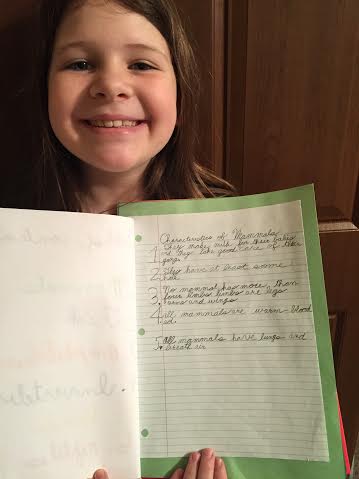 Characteristics of Mammals
1 They make milk for their babies
and they take good care of their
2. They have at least some
hair
3. No mammal has more than
four limbs limbs are legs
arms and wings
4. All mammals are warm blood
ed.
5. All mammals have lungs and
breath air